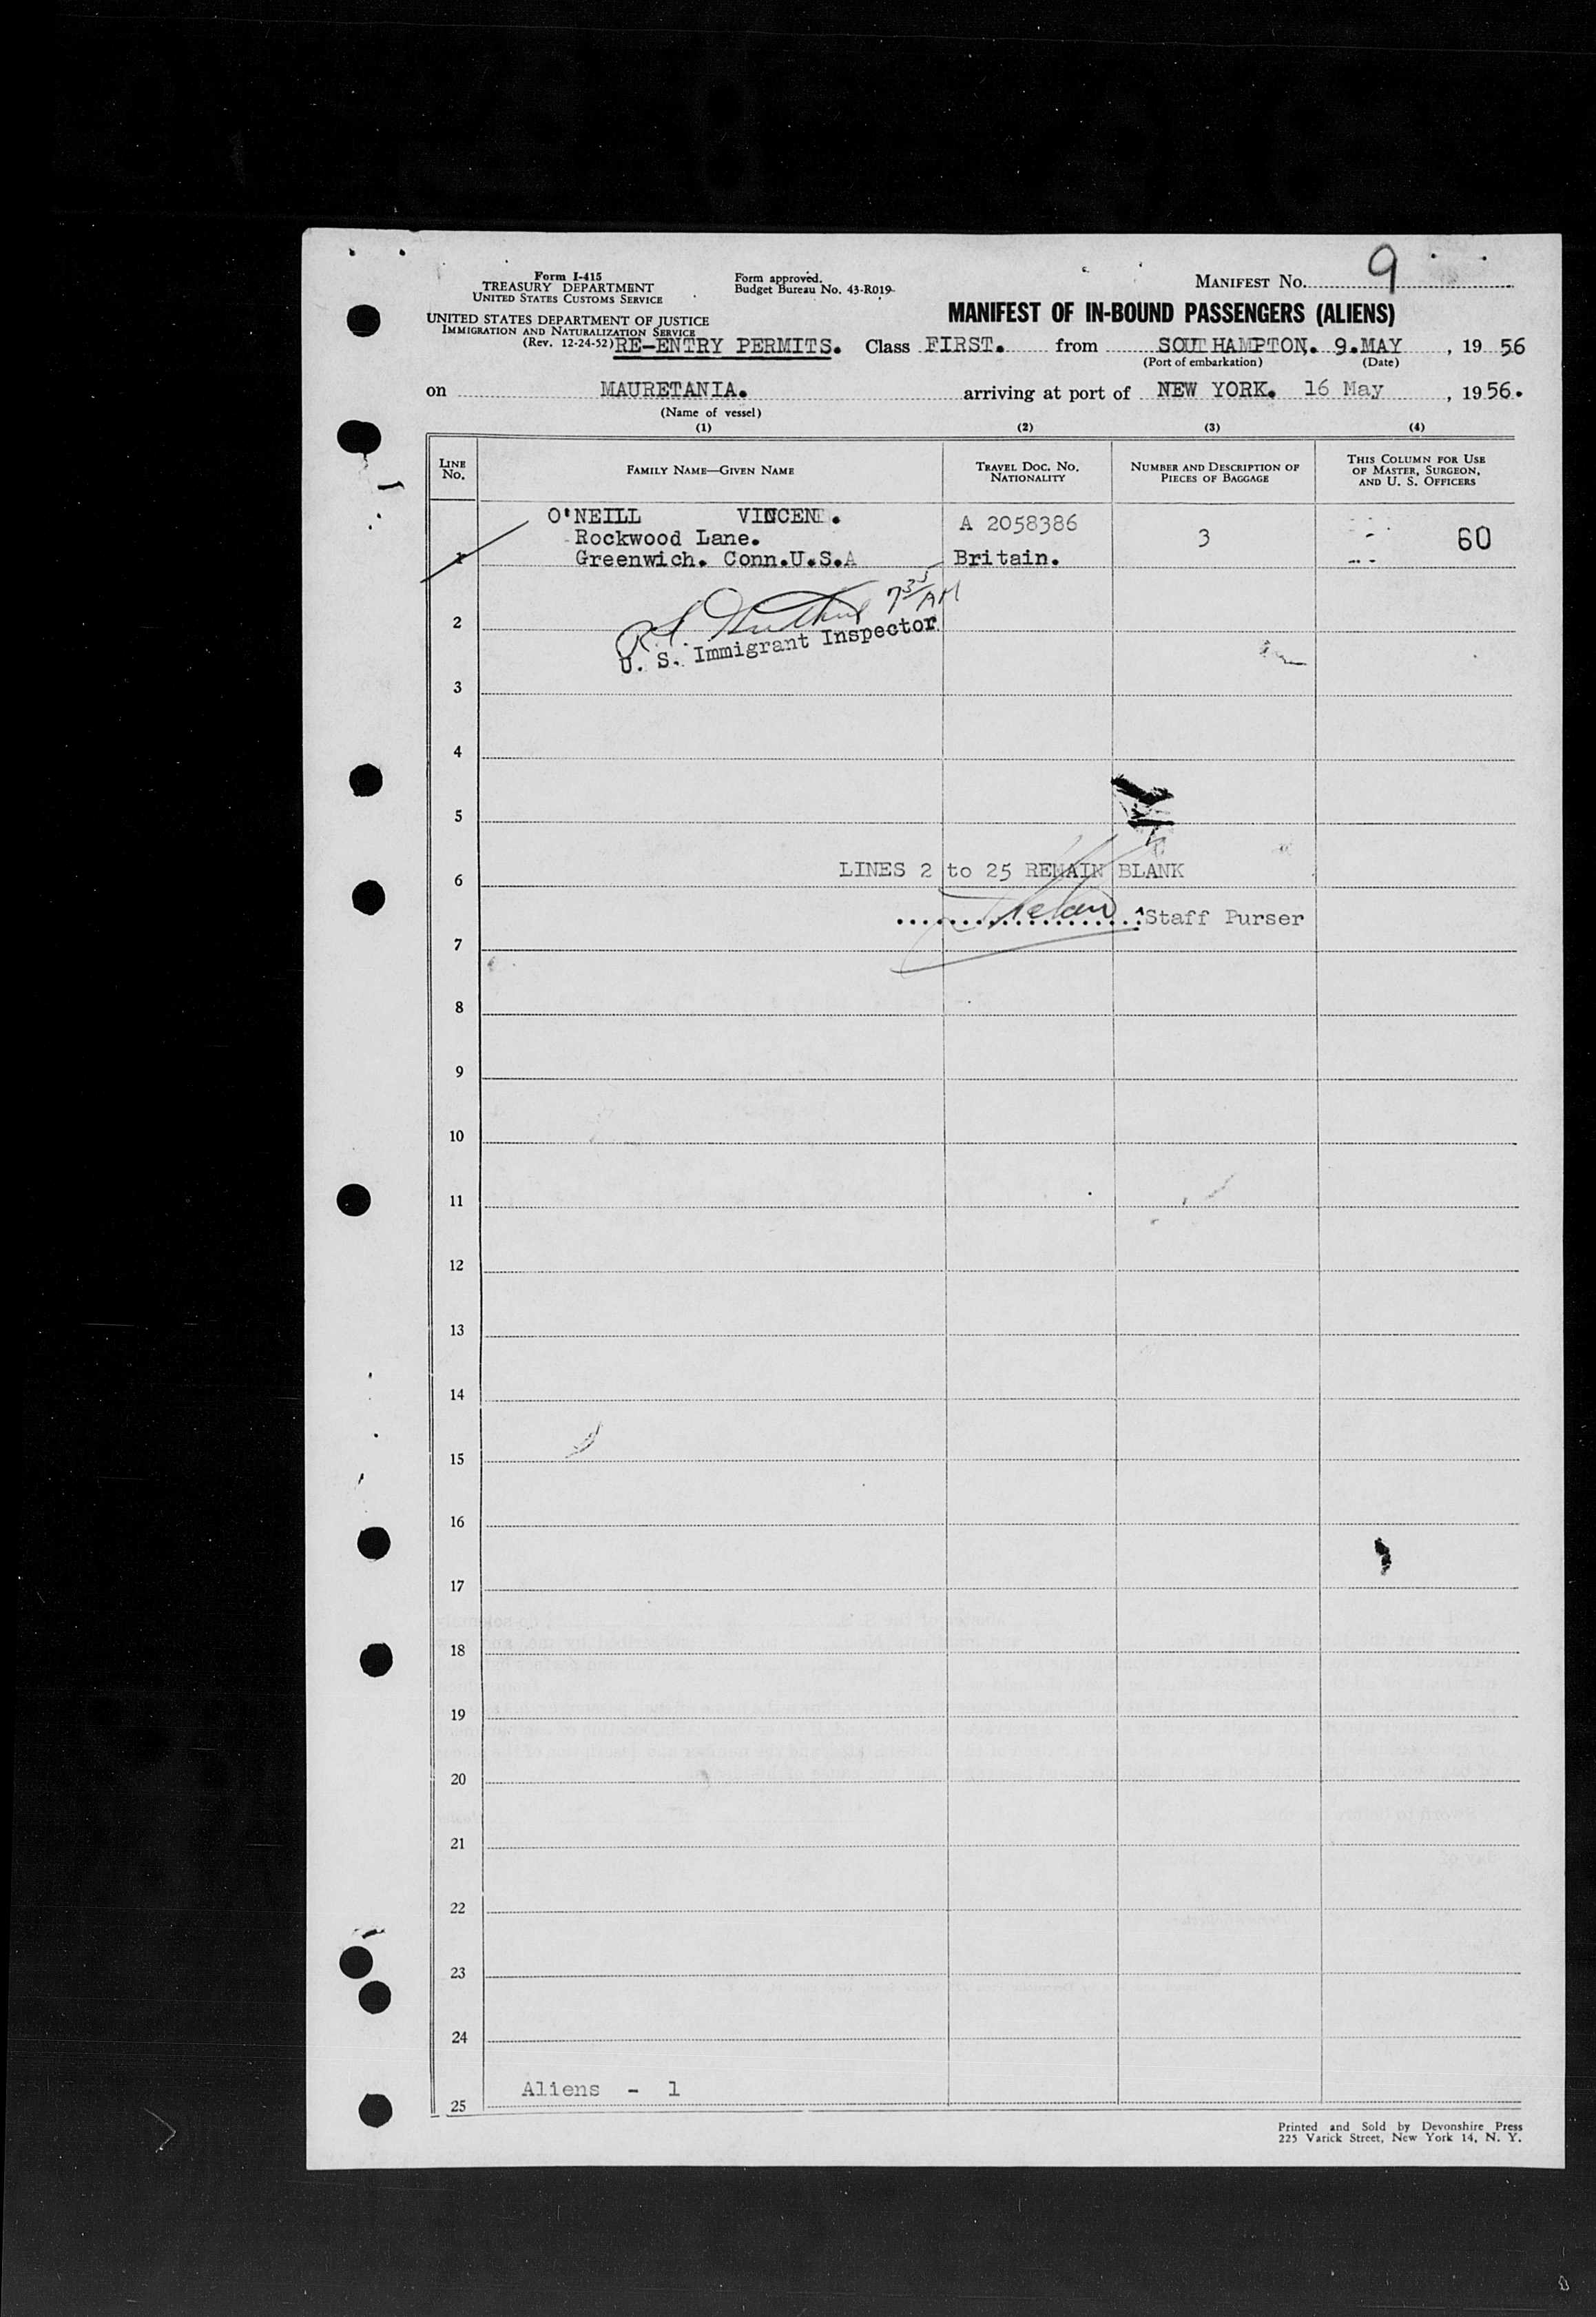 Form I-415
TREASURY DEPARTMENT
UNITED STATES CUSTOMS SERVICE
Form approved.
Budget Bureau No. 43-R019
MANIFEST No. 9
UNITED STATES DEPARTMENT OF JUSTICE
IMMIGRATION AND NATURALIZATION SERVICE
(Rev. 12-24-52)
MANIFEST OF IN-BOUND PASSENGERS (ALIENS)
RE-ENTRY PERMITS. Class FIRST. from SOUTHAMPTON. 9.MAY, 19 56
(Port of embarkation) (Date)
on MAURETANIA. arriving at port of NEW YORK. 16 May, 19 56.
(Name of vessel)
(1) (2) (3) (4)
LINE No.
FAMILY NAME—GIVEN NAME
TRAVEL DOC. NO. NATIONALITY
NUMBER AND DESCRIPTION OF PIECES OF BAGGAGE
THIS COLUMN FOR USE OF MASTER, SURGEON, AND U. S. OFFICERS
1 O'NEILL VINCENT. A 2058386 3 60
Rockwood Lane.
Greenwich. Conn.U.S.A Britain.
7 35 AM
U. S. Immigrant Inspector
2
3
4
5
LINES 2 to 25 REMAIN BLANK
6
Staff Purser
7
8
9
10
11
12
13
14
15
16
17
18
19
20
21
22
23
24
Aliens - 1
25
Printed and Sold by Devonshire Press
225 Varick Street, New York 14, N. Y.